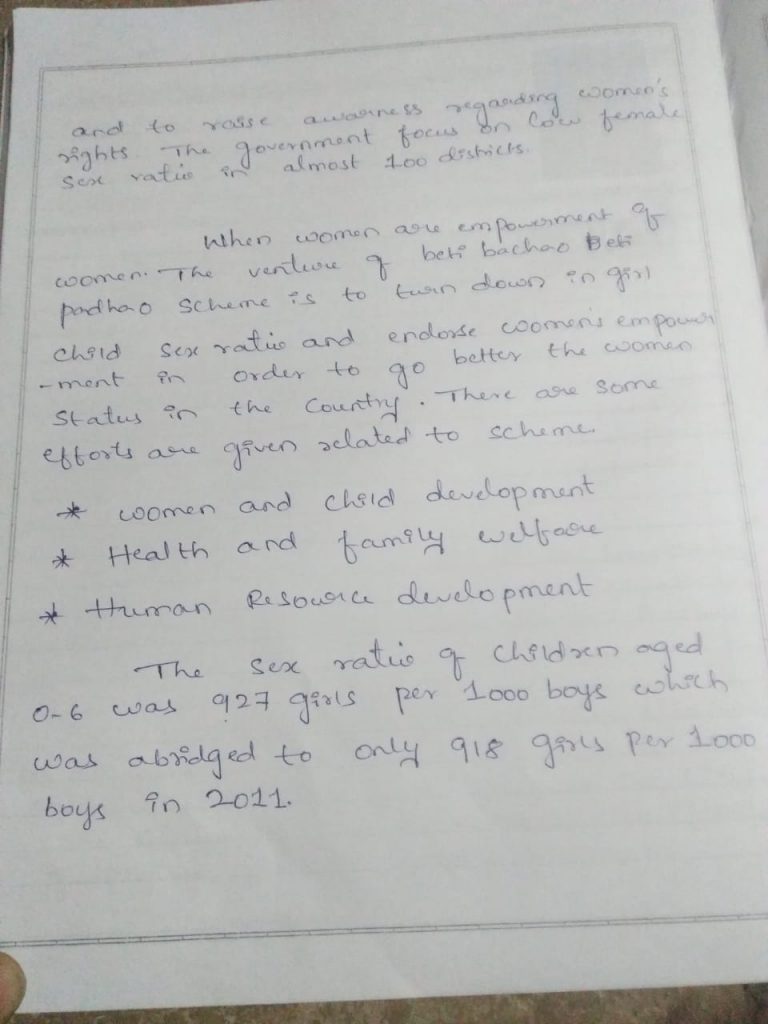 and to raise awarness regarding women's
rights. The government focus on low female
sex ratio in almost 100 districts.
When women are empowerment of
women. The venture of beti bachao Beti
padhao scheme is to turn down in girl
child sex ratio and endorse women's empower
-ment in order to go better the women
status in the country. There are some
efforts are given related to scheme.
* women and child development
* Health and family welfare
* Human Resource development
The sex ratio of children aged
0-6 was 927 girls per 1000 boys which
was abridged to only 918 girls per 1000
boys in 2011.